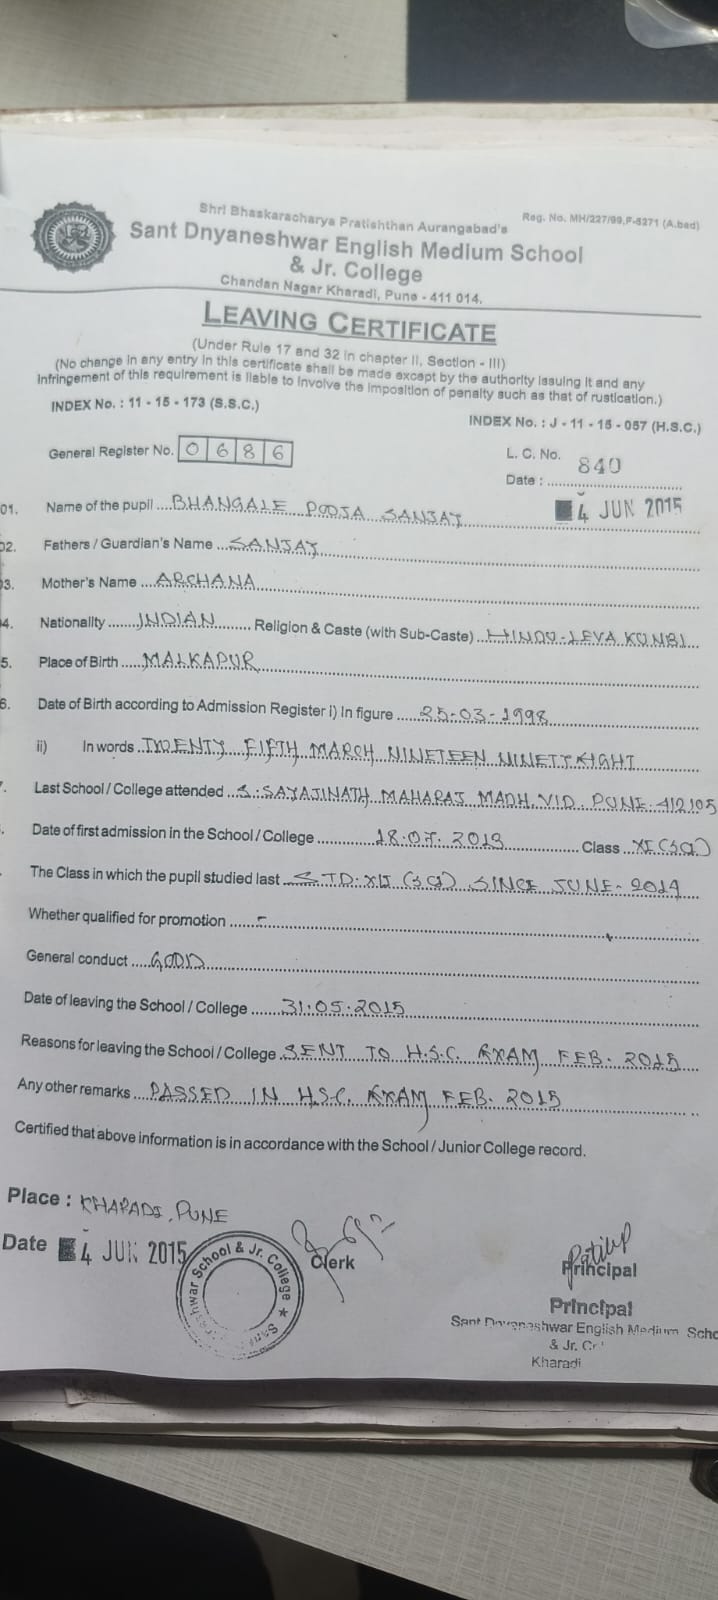 Shri Bhaskaracharya Pratishthan Aurangabad's
Reg. No. MH/227/99,F-5271 (A.bad)
Sant Dnyaneshwar English Medium School
& Jr. College
Chandan Nagar Kharadi, Pune - 411 014.
LEAVING CERTIFICATE
(Under Rule 17 and 32 in chapter II, Section - III)
(No change in any entry in this certificate shall be made except by the authority issuing it and any
infringement of this requirement is liable to involve the imposition of penalty such as that of rustication.)
INDEX No. : 11 - 15 - 173 (S.S.C.)
INDEX No. : J - 11 - 15 - 057 (H.S.C.)
General Register No. 0 6 8 6
L. C. No. 840
Date : 4 JUN 2015
01. Name of the pupil BHANGALE POOJA SANJAY
02. Fathers / Guardian's Name SANJAY
03. Mother's Name ARCHANA
4. Nationality INDIAN Religion & Caste (with Sub-Caste) HINDU-LEVA KUNBI
5. Place of Birth MALKAPUR
6. Date of Birth according to Admission Register i) In figure 25-03-1998
ii) In words TWENTY FIFTH MARCH NINETEEN NINETY EIGHT
Last School / College attended S. SAYAJINATH MAHARAJ MADH. VID. PUNE-412105
Date of first admission in the School / College 18.07.2013 Class XI (SCI)
The Class in which the pupil studied last STD-XII (SCI) SINCE JUNE-2014
Whether qualified for promotion -
General conduct GOOD
Date of leaving the School / College 31.05.2015
Reasons for leaving the School / College SENT TO H.S.C. EXAM FEB. 2015
Any other remarks PASSED IN H.S.C. EXAM FEB. 2015
Certified that above information is in accordance with the School / Junior College record.
Place : KHARADI, PUNE
Date 4 JUN 2015
School & Jr. College
Clerk
Principal
Principal
Sant Dnyaneshwar English Medium Scho
& Jr.
Kharadi